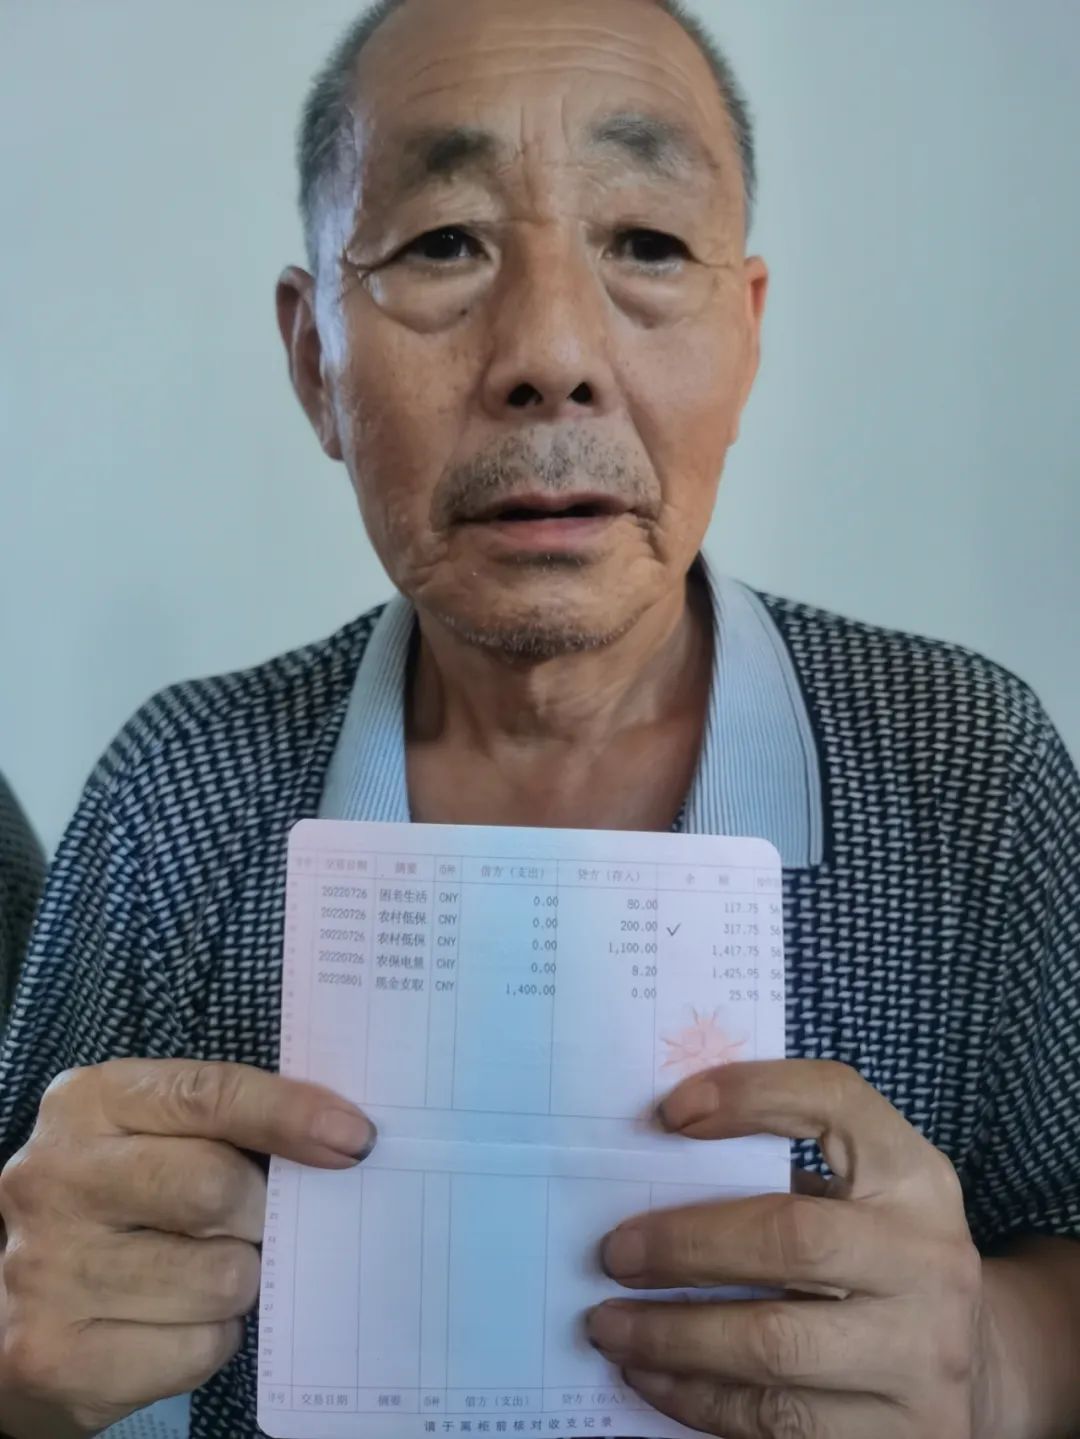 序号 交易日期 摘要 币种 借方（支出） 贷方（存入） 余 额
20220726 困老生活 CNY 0.00 80.00 117.75 56
20220726 农村低保 CNY 0.00 200.00 ✓ 317.75 56
20220726 农村低保 CNY 0.00 1,100.00 1,417.75 56
20220726 农保电量 CNY 0.00 8.20 1,425.95 56
20220801 现金支取 CNY 1,400.00 0.00 25.95 56
22
23
24
25
26
27
28
29
30
序号 交易日期 摘要 币种 借方（支出） 贷方（存入）
请于离柜前核对收支记录